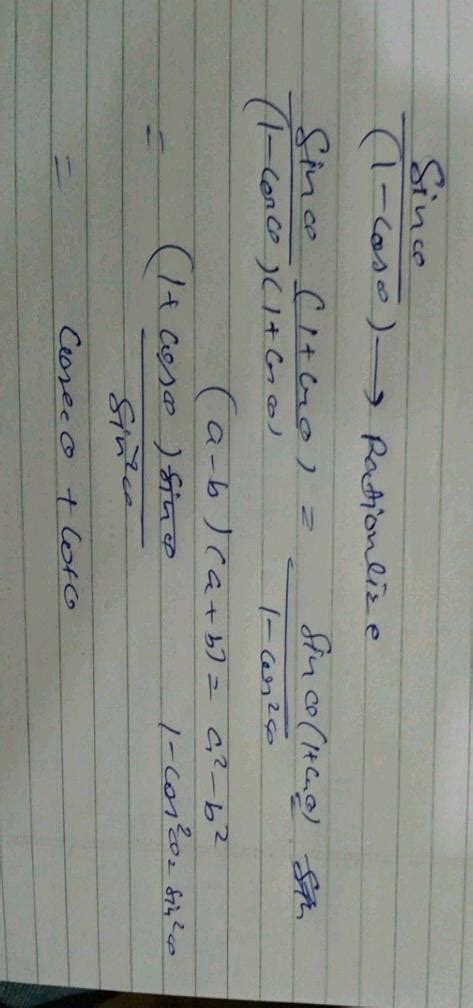 Sinθ
(1-cosθ) → Rationlize
Sinθ (1+cosθ) = Sinθ(1+cosθ)
(1-cosθ)(1+cosθ) 1-cos²θ
(a-b)(a+b) = a²-b²
= (1+cosθ)sinθ 1-cos²θ = sin²θ
Sin²θ
= Cosecθ + Cotθ